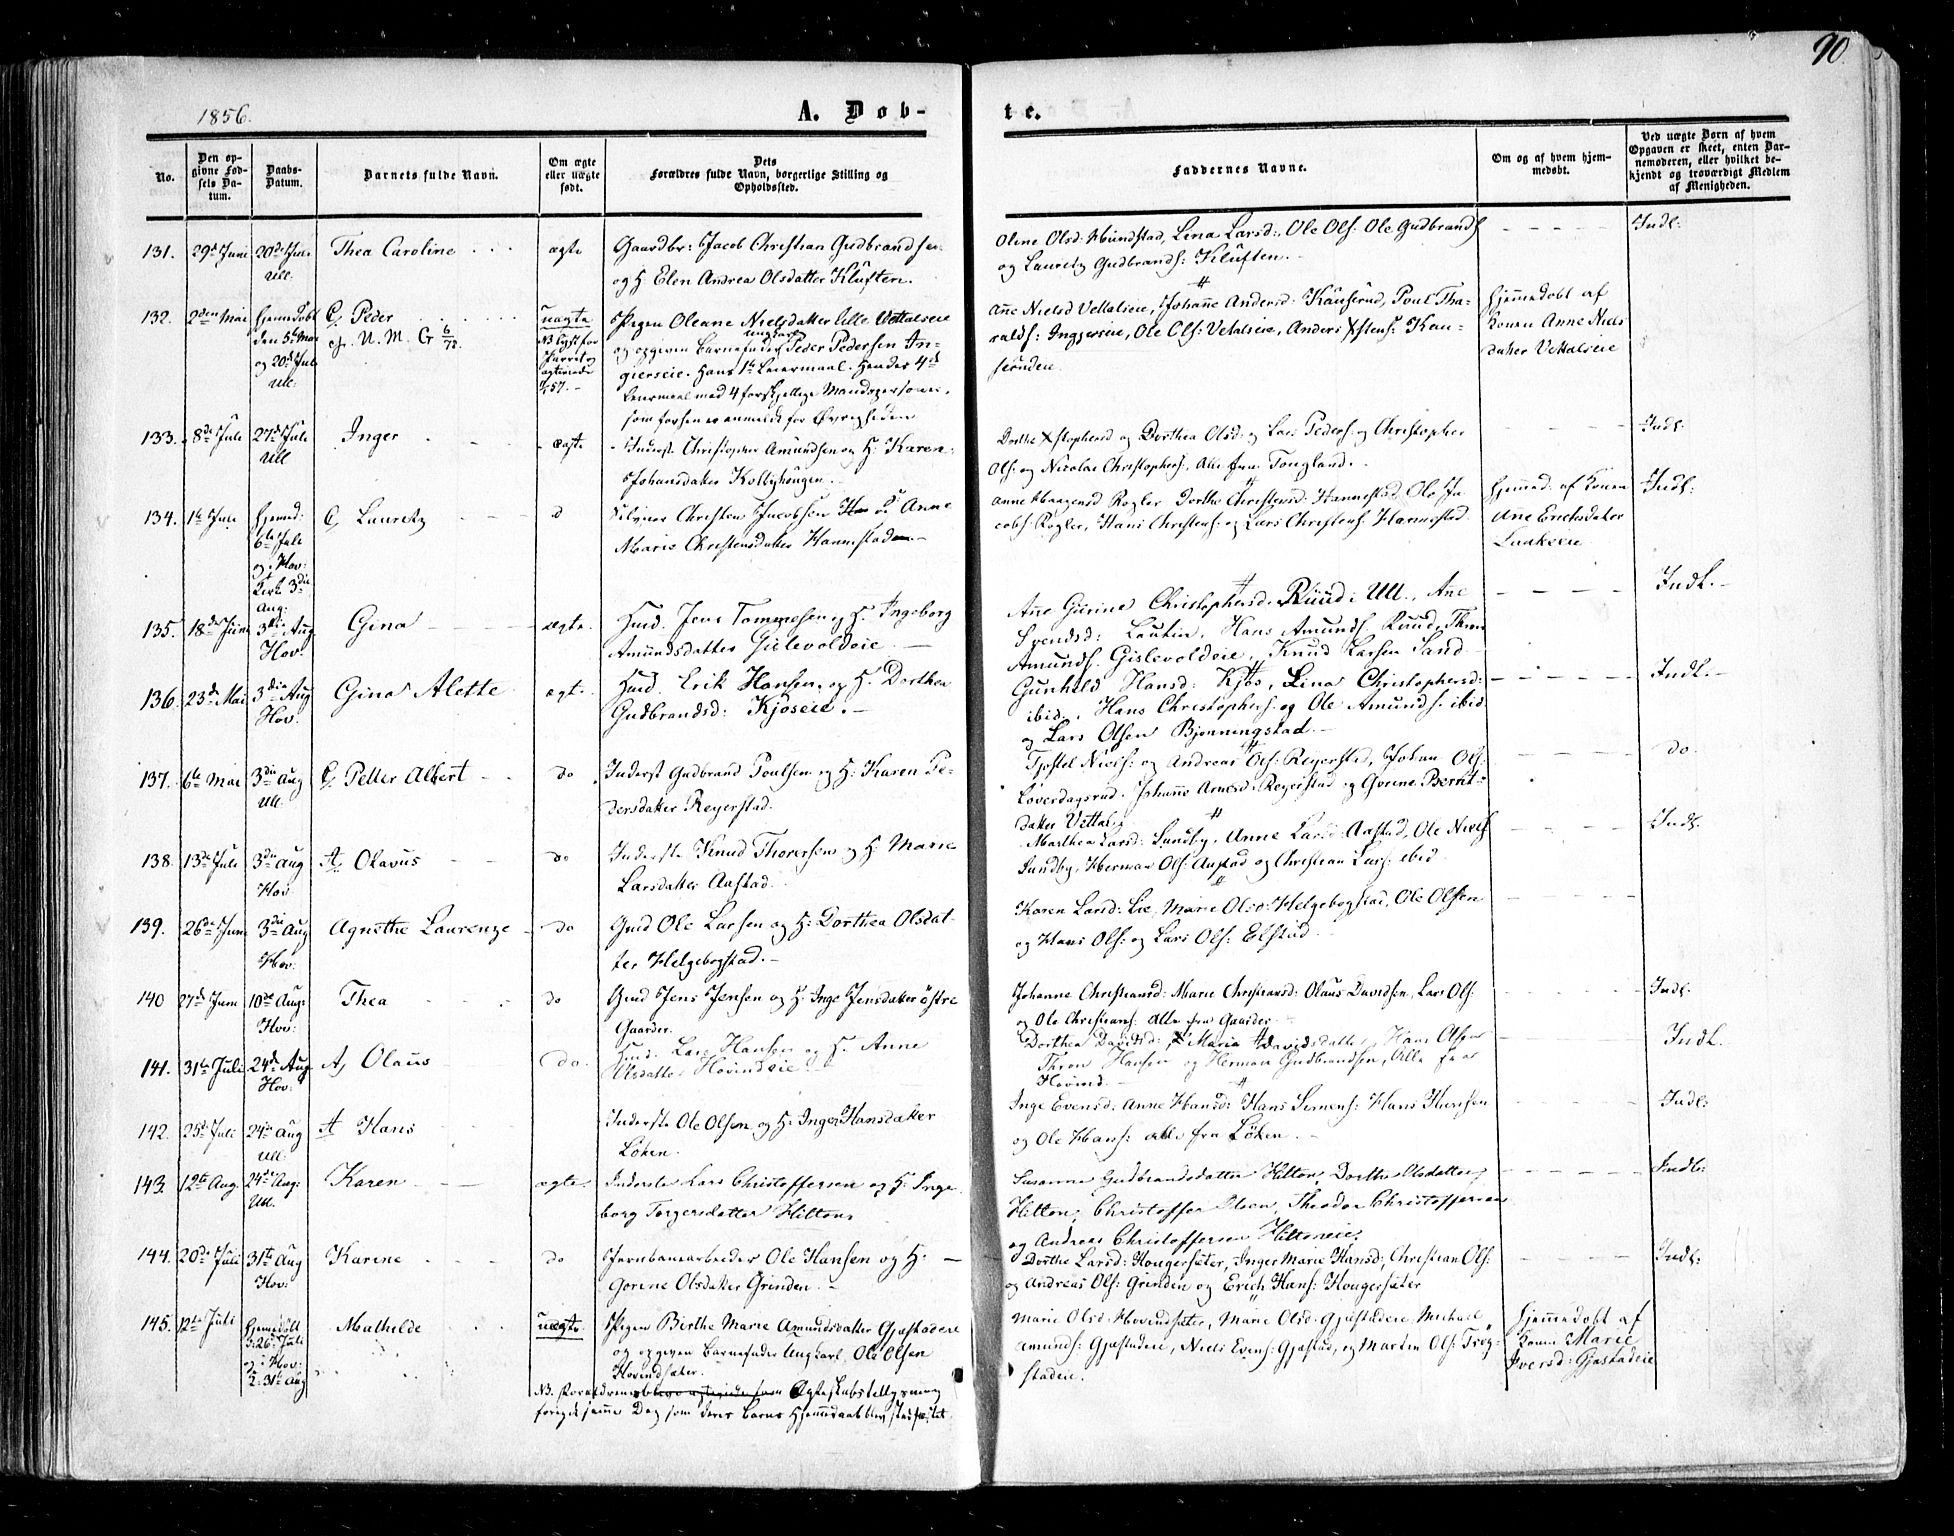 90
1856.
A. Døb-
te.
No.
Den op-
givne Fød-
sels Da-
tum.
Daabs-
Datum.
Barnets fulde Navn.
Om ægte
eller uægte
født.
Dets
Forældres fulde Navn, borgerlige Stilling og
Opholdssted.
Faddernes Navne.
Om og af hvem hjem-
medøbt.
Ved uægte Børn af hvem
Opgaven er skeet, enten Bar-
nemoderen, eller hvilket be-
kjendt og troværdigt Medlem
af Menigheden.
131. 29d Juni 20de Juli Ull. Thea Caroline ægte Gaardbr: Jacob Christian Gudbrandsen
og H Elen Andrea Olsdatter Kluften.
Olene Olsd: Mundstad, Lena Larsd: Ole Ols: Ole Gudbrands
og Lauretz Gudbrands: Kluften. Indl:
132. 2den Mai Hjemmedøbt den 5te Mai og 20de Juli Ull: Peder uægte Pigen Oleane Nielsdatter lille Vettalseie
og opgiven Barnefader Ungkarl Peder Pedersen In-
gierseie. Hans 1te Leiermaal. Hendes 4de
Leiermaal med 4 forskjellige Mandspersoner,
som forhen er anmeldt for Øvrigheden
Anne Nielsd Vettalseie, Johanne Andersd: Kauserud, Poul Tha-
ralds: Ingjerseie, Ole Ols: Vetalseie, Anders Xstens: Kau-
serudeie
Hjemmedøbt af
Konen Anne Niels
datter Vettalseie
133. 8de Juli 27de Juli Ull Inger ægte Inderst Christopher Amundsen og H: Karen
Johansdatter Kolbyhougen.
Dorthe Xstophersd og Dorthea Olsd: og Lars Peders: og Christopher
Ols: og Nicolai Christophers:, Alle fra Tongland. Indl:
134. 1te Juli Hjemd: 6te Juli og i Hov: Kirke 3die Aug: Lauretz d Selveier Christen Jacobsen og Anne
Marie Christensdatter Hannestad
Anne Haagensd Rogler Dorthe Christensd: Hannestad, Ole Ja-
cobs: Rogler, Hans Christens: og Lars Christens: Hannestad.
Hjemmed: af Konen
Anne Ericksdatter
Indl:
135. 18de Juni 3die Aug. Hov: Gina ægte. Husd. Jens Tommesen og H. Ingeborg
Amundsdatter Gislevoldeie.
Anne Gurine Christophersd. Ruud i Ull., Ane
Svendsd: Hans Amunds. Ruud, Thron
Amunds. Gislevoldeie, Knud Larsen Sand
Indl.
136. 23de Mai 3die Aug Hov. Gina Alette ægte. Husd. Erik Hansen og H. Dorthea
Gudbrandsd: Kjøseie.
Gunhild Hansd: Kjøs, Lina Christophersd:
ibid., Hans Christophers: og Ole Amunds: ibid
og Lars Olsen Bjønningstad. Indl.
137. 6te Mai 3die Aug Ull. Petter Albert do Inderst Gudbrand Poulsen og H: Karen Pe-
dersdatter Reyerstad.
Tjøstel Niels: og Andreas Ols: Reyerstad, Johan Ols:
Løverdagsrud. Johanne Arnesd: Reyerstad og Gorine Bernt-
datter Vettal. do.
138. 13de Juli 3die Aug Hov A Olavus do Inderste Knud Thoresen og H. Marie
Larsdatter Aastad.
Marthea Larsd: Sundby, Anne Larsd: Aastad, Ole Niels
Sundby, Herman Ols: Aastad og Christian Lars: ibid. Indl.
139. 26de Juni 3die Aug Hov: Agnethe Laurenze do Gmd Ole Larsen og H: Dorthea Olsdat-
ter Helgebogstad.
Karen Larsd: Lie, Marie Olsd: Helgebogstad, Ole Olsen
og Hans Ols: og Lars Ols: Elstad
140 27de Juni 10de Aug: Hov: Thea do Gmd Jens Jensen og H. Inge Jensdatter østre
Gaarder.
Johanne Christiansd: Marie Christiansd: Olaus Davidsen, Lars Ols:
og Ole Christians: Alle fra Gaarder. Indl:
141. 31te Juli 24de Aug Hov: A, Olaus do. Husd. Lars Hansen og H. Anne
Olsdatter Hovindeie.
Dorthea Davidsd: Maria Davidsdatter, Hans Olsen
Thron Hansen og Herman Gudbrandsen, Alle fra
Hovind. Indl.
142. 25de Juli 24de Aug Ull: A Hans Inderste Ole Olsen og H: Inger Hansdatter
Løken.
Inge Evensd: Anne Hansd: Hans Simens: Hans Hansen
og Ole Hans: alle fra Løken. Indl:
143. 12te Aug. 24de Aug: Ull. Karen ægte. Inderste Lars Christoffersen og H: Inge
borg Torgersdatter Hilton.
Susanne Gudbrandsdatter Hilton, Dorthe Olsdatter,
Hilton, Christoffer Olsen, Theodor Christoffersen
og Andreas Christoffersen Hiltoneie. Indl:
144. 20de Juli 31te Aug Hov: Karine do Jernbanearbeider Ole Hansen og H:
Gorene Olsdatter Grinden.
Dorthe Larsd: Hougersæter, Inger Marie Hansd: Christian Ols:
og Andreas Ols: Grinden og Erich Hans: Hougersæter Indl:
145. 12te Juli Hjemmedøbt d: 26de Juli og i Hov: d: 31te Aug Mathilde uægte. Pigen Birthe Marie Amundsdatter Gjæstadeie
og opgiven Barnefader Ungkarl, Ole Olsen
Hovindsæter.
Marie Olsd Hovindsæter, Marie Olsd: Gjæstadeie, Michael
Amunds: Gjæstadeie, Niels Evens: Gjæstad, og Martin Ols:
stadeie.
Hjemmedøbt af
Konen Marie
Iversd: Gjæstadeie
NB. Forældrenes Ægteskabstillysning
foregik samme Dag som deres Barns Hjemmedaab blev stadfæstet.